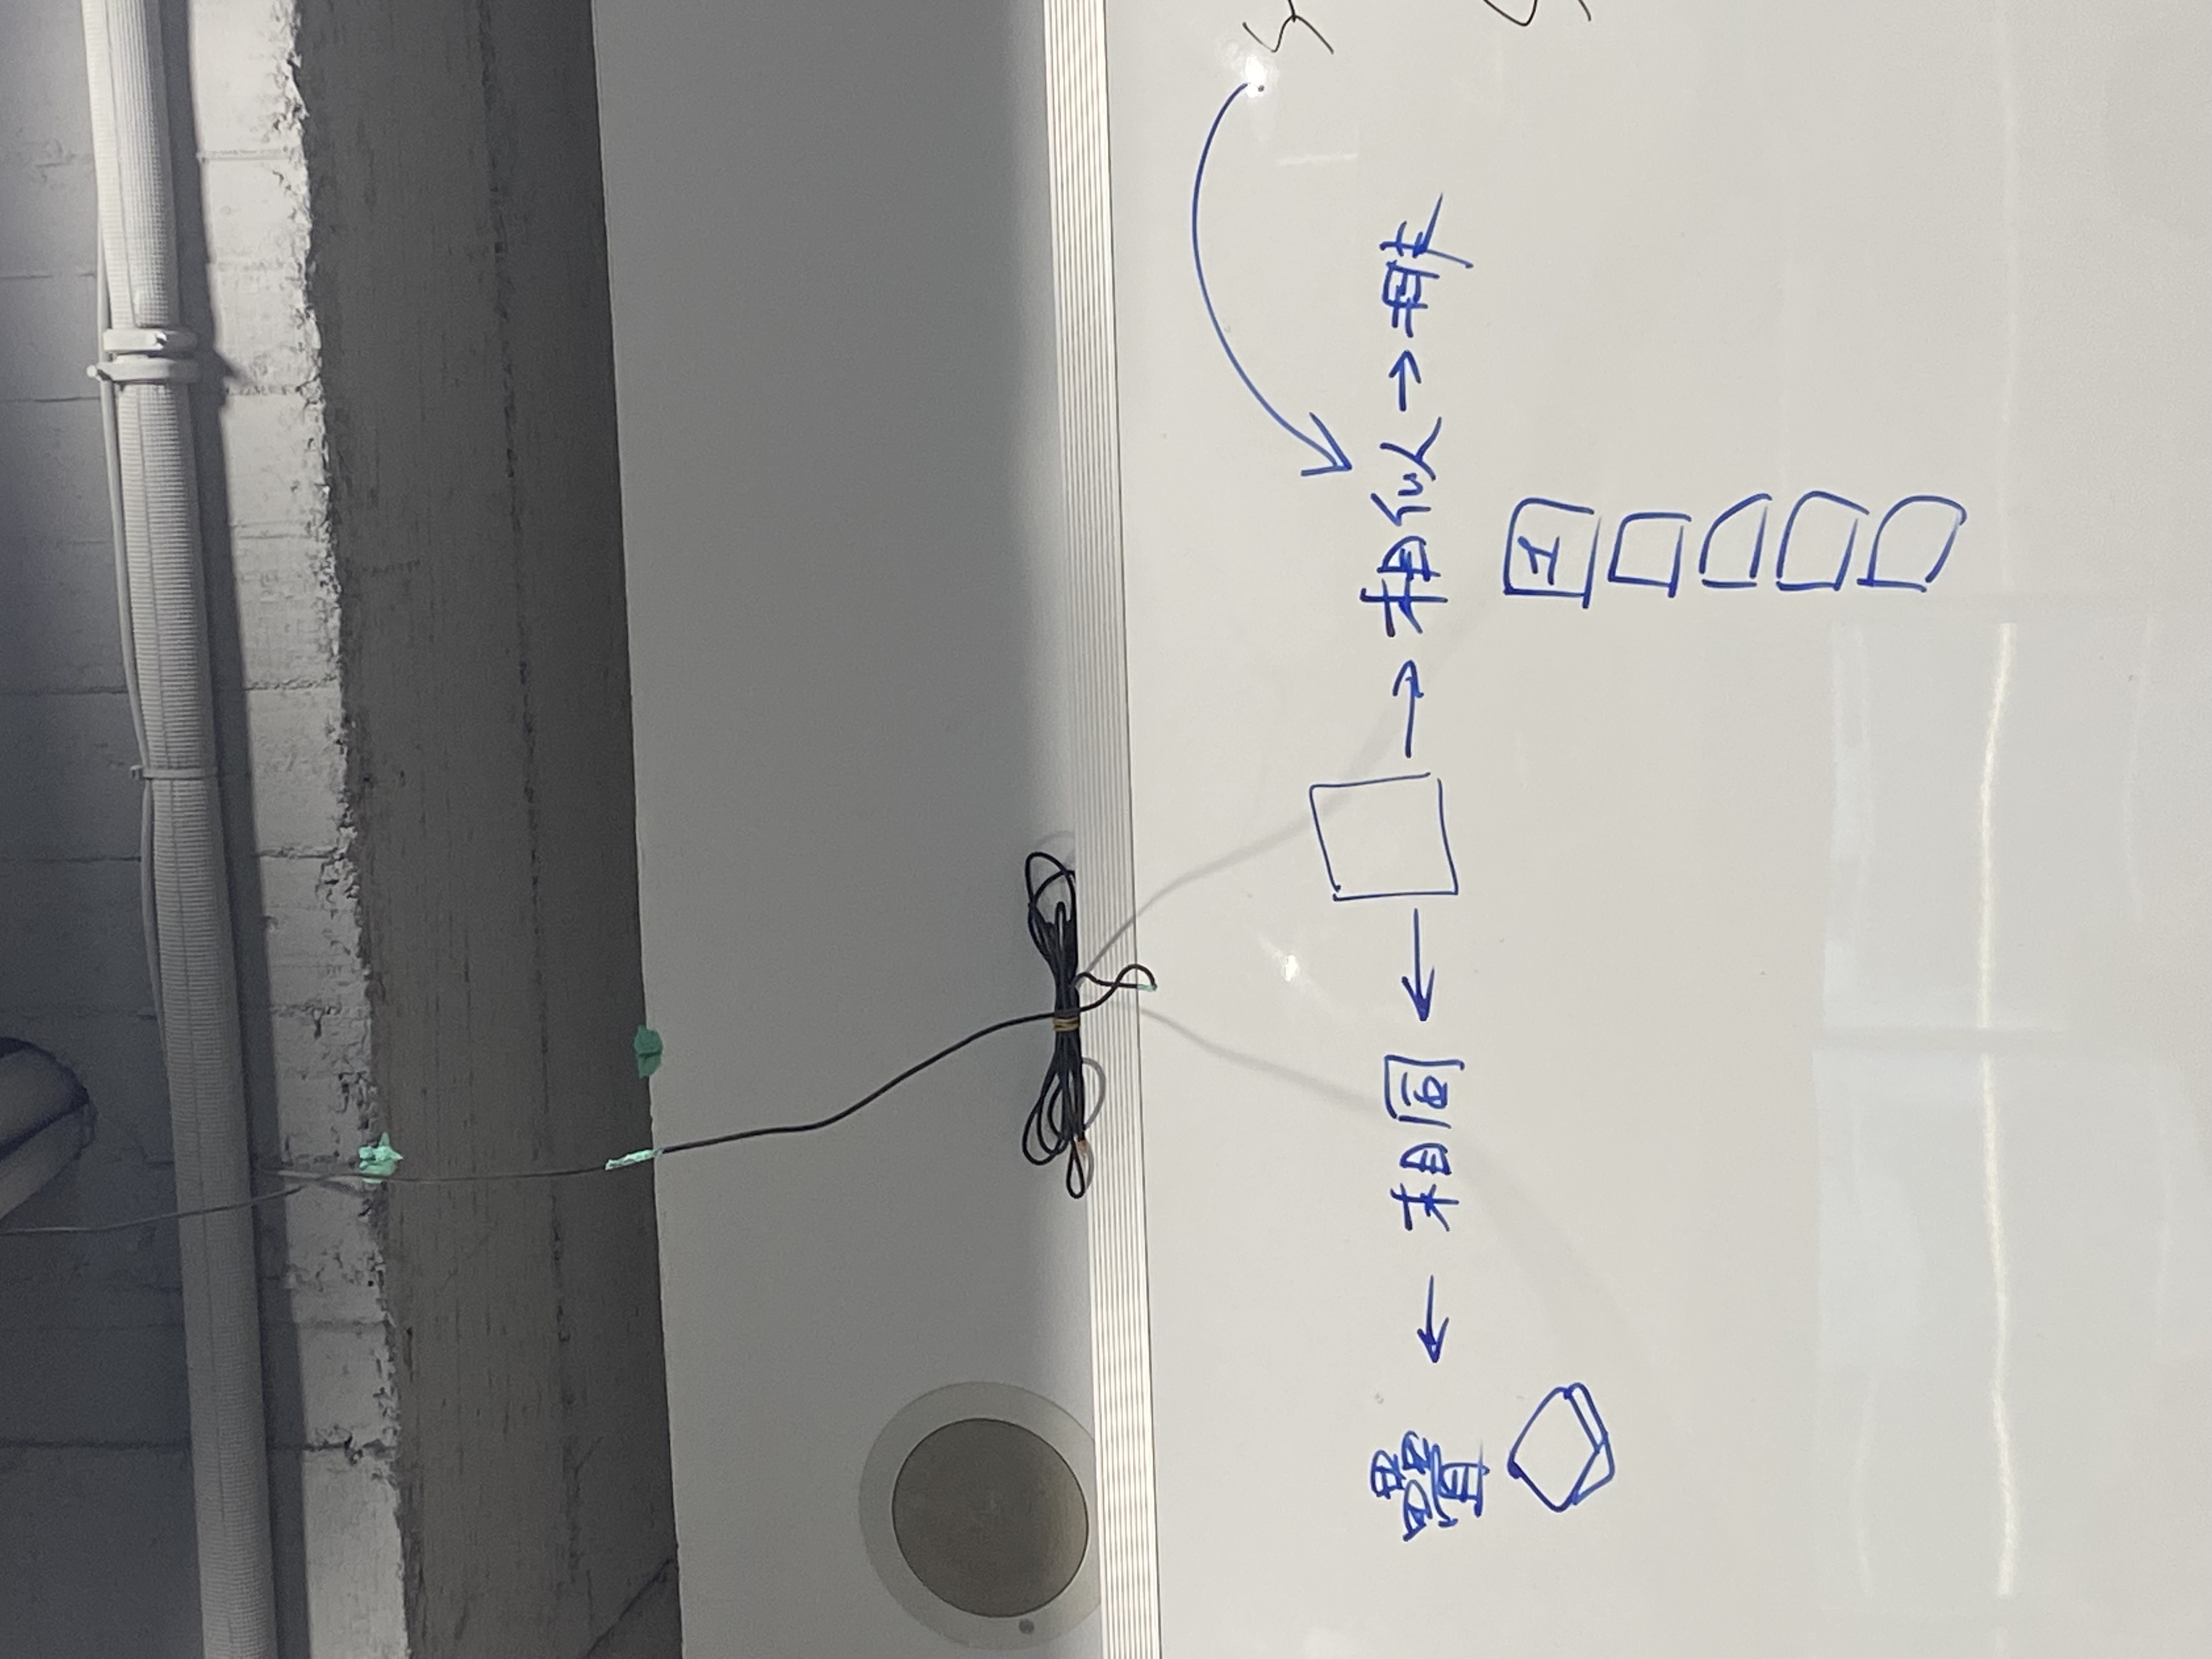 疊 ← 相同 ← □ → 相似 → 排
1